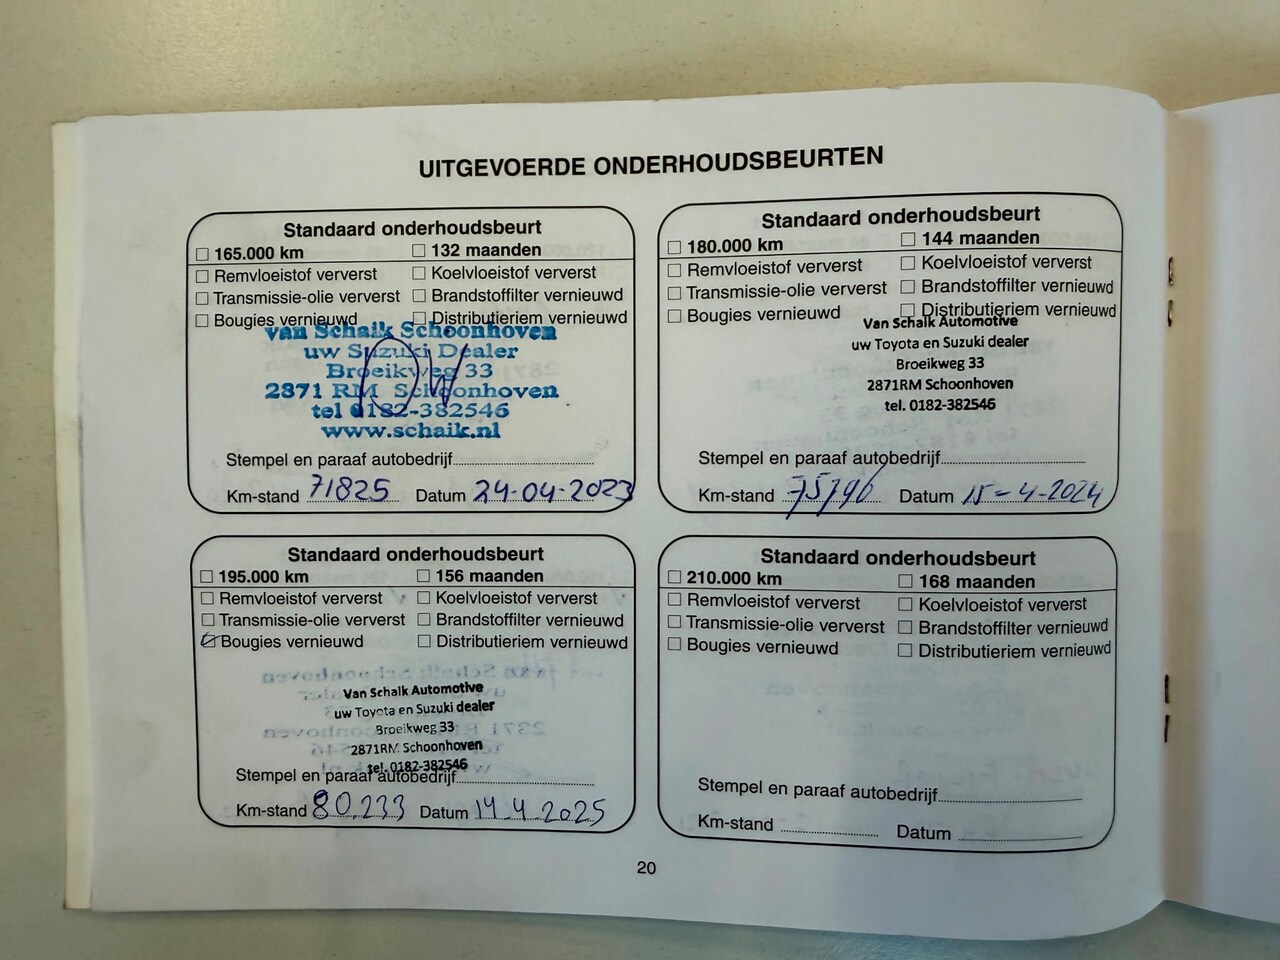 UITGEVOERDE ONDERHOUDSBEURTEN
Standaard onderhoudsbeurt
☐ 165.000 km ☐ 132 maanden
☐ Remvloeistof ververst ☐ Koelvloeistof ververst
☐ Transmissie-olie ververst ☐ Brandstoffilter vernieuwd
☐ Bougies vernieuwd ☐ Distributieriem vernieuwd
van Schaik Schoonhoven
uw Suzuki Dealer
Broeikweg 33
2871 RM Schoonhoven
tel 0182-382546
www.schaik.nl
Stempel en paraaf autobedrijf
Km-stand 71825 Datum 24-04-2023
Standaard onderhoudsbeurt
☐ 180.000 km ☐ 144 maanden
☐ Remvloeistof ververst ☐ Koelvloeistof ververst
☐ Transmissie-olie ververst ☐ Brandstoffilter vernieuwd
☐ Bougies vernieuwd ☐ Distributieriem vernieuwd
Van Schaik Automotive
uw Toyota en Suzuki dealer
Broeikweg 33
2871RM Schoonhoven
tel. 0182-382546
Stempel en paraaf autobedrijf
Km-stand Datum 15-4-2024
Standaard onderhoudsbeurt
☐ 195.000 km ☐ 156 maanden
☐ Remvloeistof ververst ☐ Koelvloeistof ververst
☐ Transmissie-olie ververst ☐ Brandstoffilter vernieuwd
☑ Bougies vernieuwd ☐ Distributieriem vernieuwd
Van Schaik Automotive
uw Toyota en Suzuki dealer
Broeikweg 33
2871RM Schoonhoven
tel. 0182-382546
Stempel en paraaf autobedrijf
Km-stand 80.233 Datum 14.4.2025
Standaard onderhoudsbeurt
☐ 210.000 km ☐ 168 maanden
☐ Remvloeistof ververst ☐ Koelvloeistof ververst
☐ Transmissie-olie ververst ☐ Brandstoffilter vernieuwd
☐ Bougies vernieuwd ☐ Distributieriem vernieuwd
Stempel en paraaf autobedrijf
Km-stand Datum
20